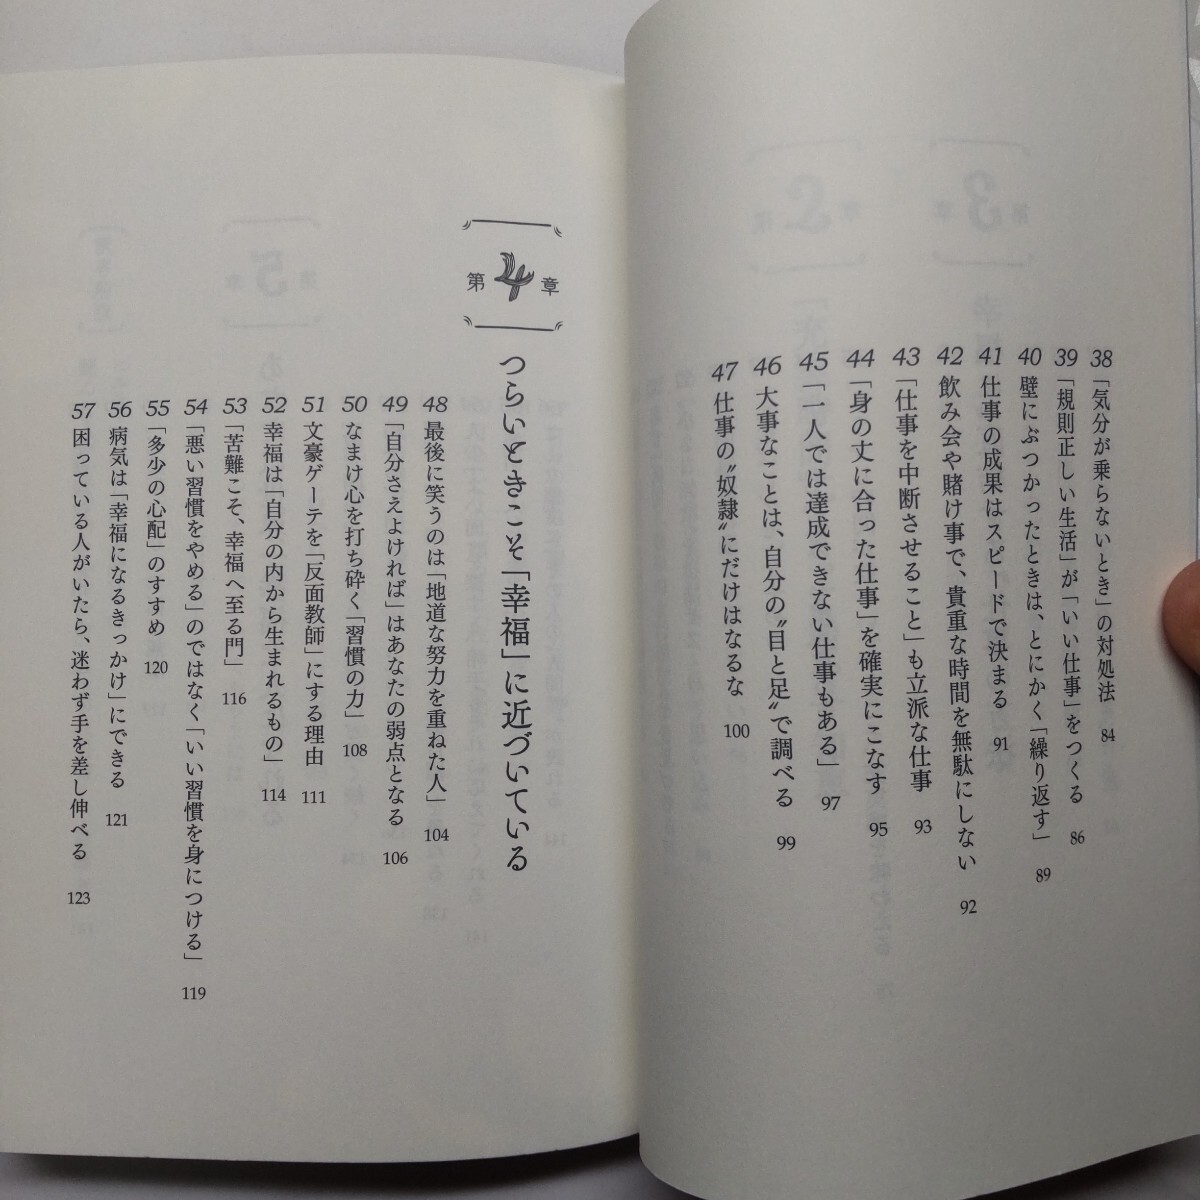 38 「気分が乗らないとき」の対処法 84
39 「規則正しい生活」が「いい仕事」をつくる 86
40 壁にぶつかったときは、とにかく「繰り返す」 89
41 仕事の成果はスピードで決まる 91
42 飲み会や賭け事で、貴重な時間を無駄にしない 92
43 「仕事を中断させること」も立派な仕事 93
44 「身の丈に合った仕事」を確実にこなす 95
45 「一人では達成できない仕事もある」 97
46 大事なことは、自分の〝目と足〟で調べる 99
47 仕事の〝奴隷〟にだけはなるな 100
第4章
つらいときこそ「幸福」に近づいている
48 最後に笑うのは「地道な努力を重ねた人」 104
49 「自分さえよければ」はあなたの弱点となる 106
50 なまけ心を打ち砕く「習慣の力」 108
51 文豪ゲーテを「反面教師」にする理由 111
52 幸福は「自分の内から生まれるもの」 114
53 「苦難こそ、幸福へ至る門」 116
54 「悪い習慣をやめる」のではなく「いい習慣を身につける」 119
55 「多少の心配」のすすめ 120
56 病気は「幸福になるきっかけ」にできる 121
57 困っている人がいたら、迷わず手を差し伸べる 123